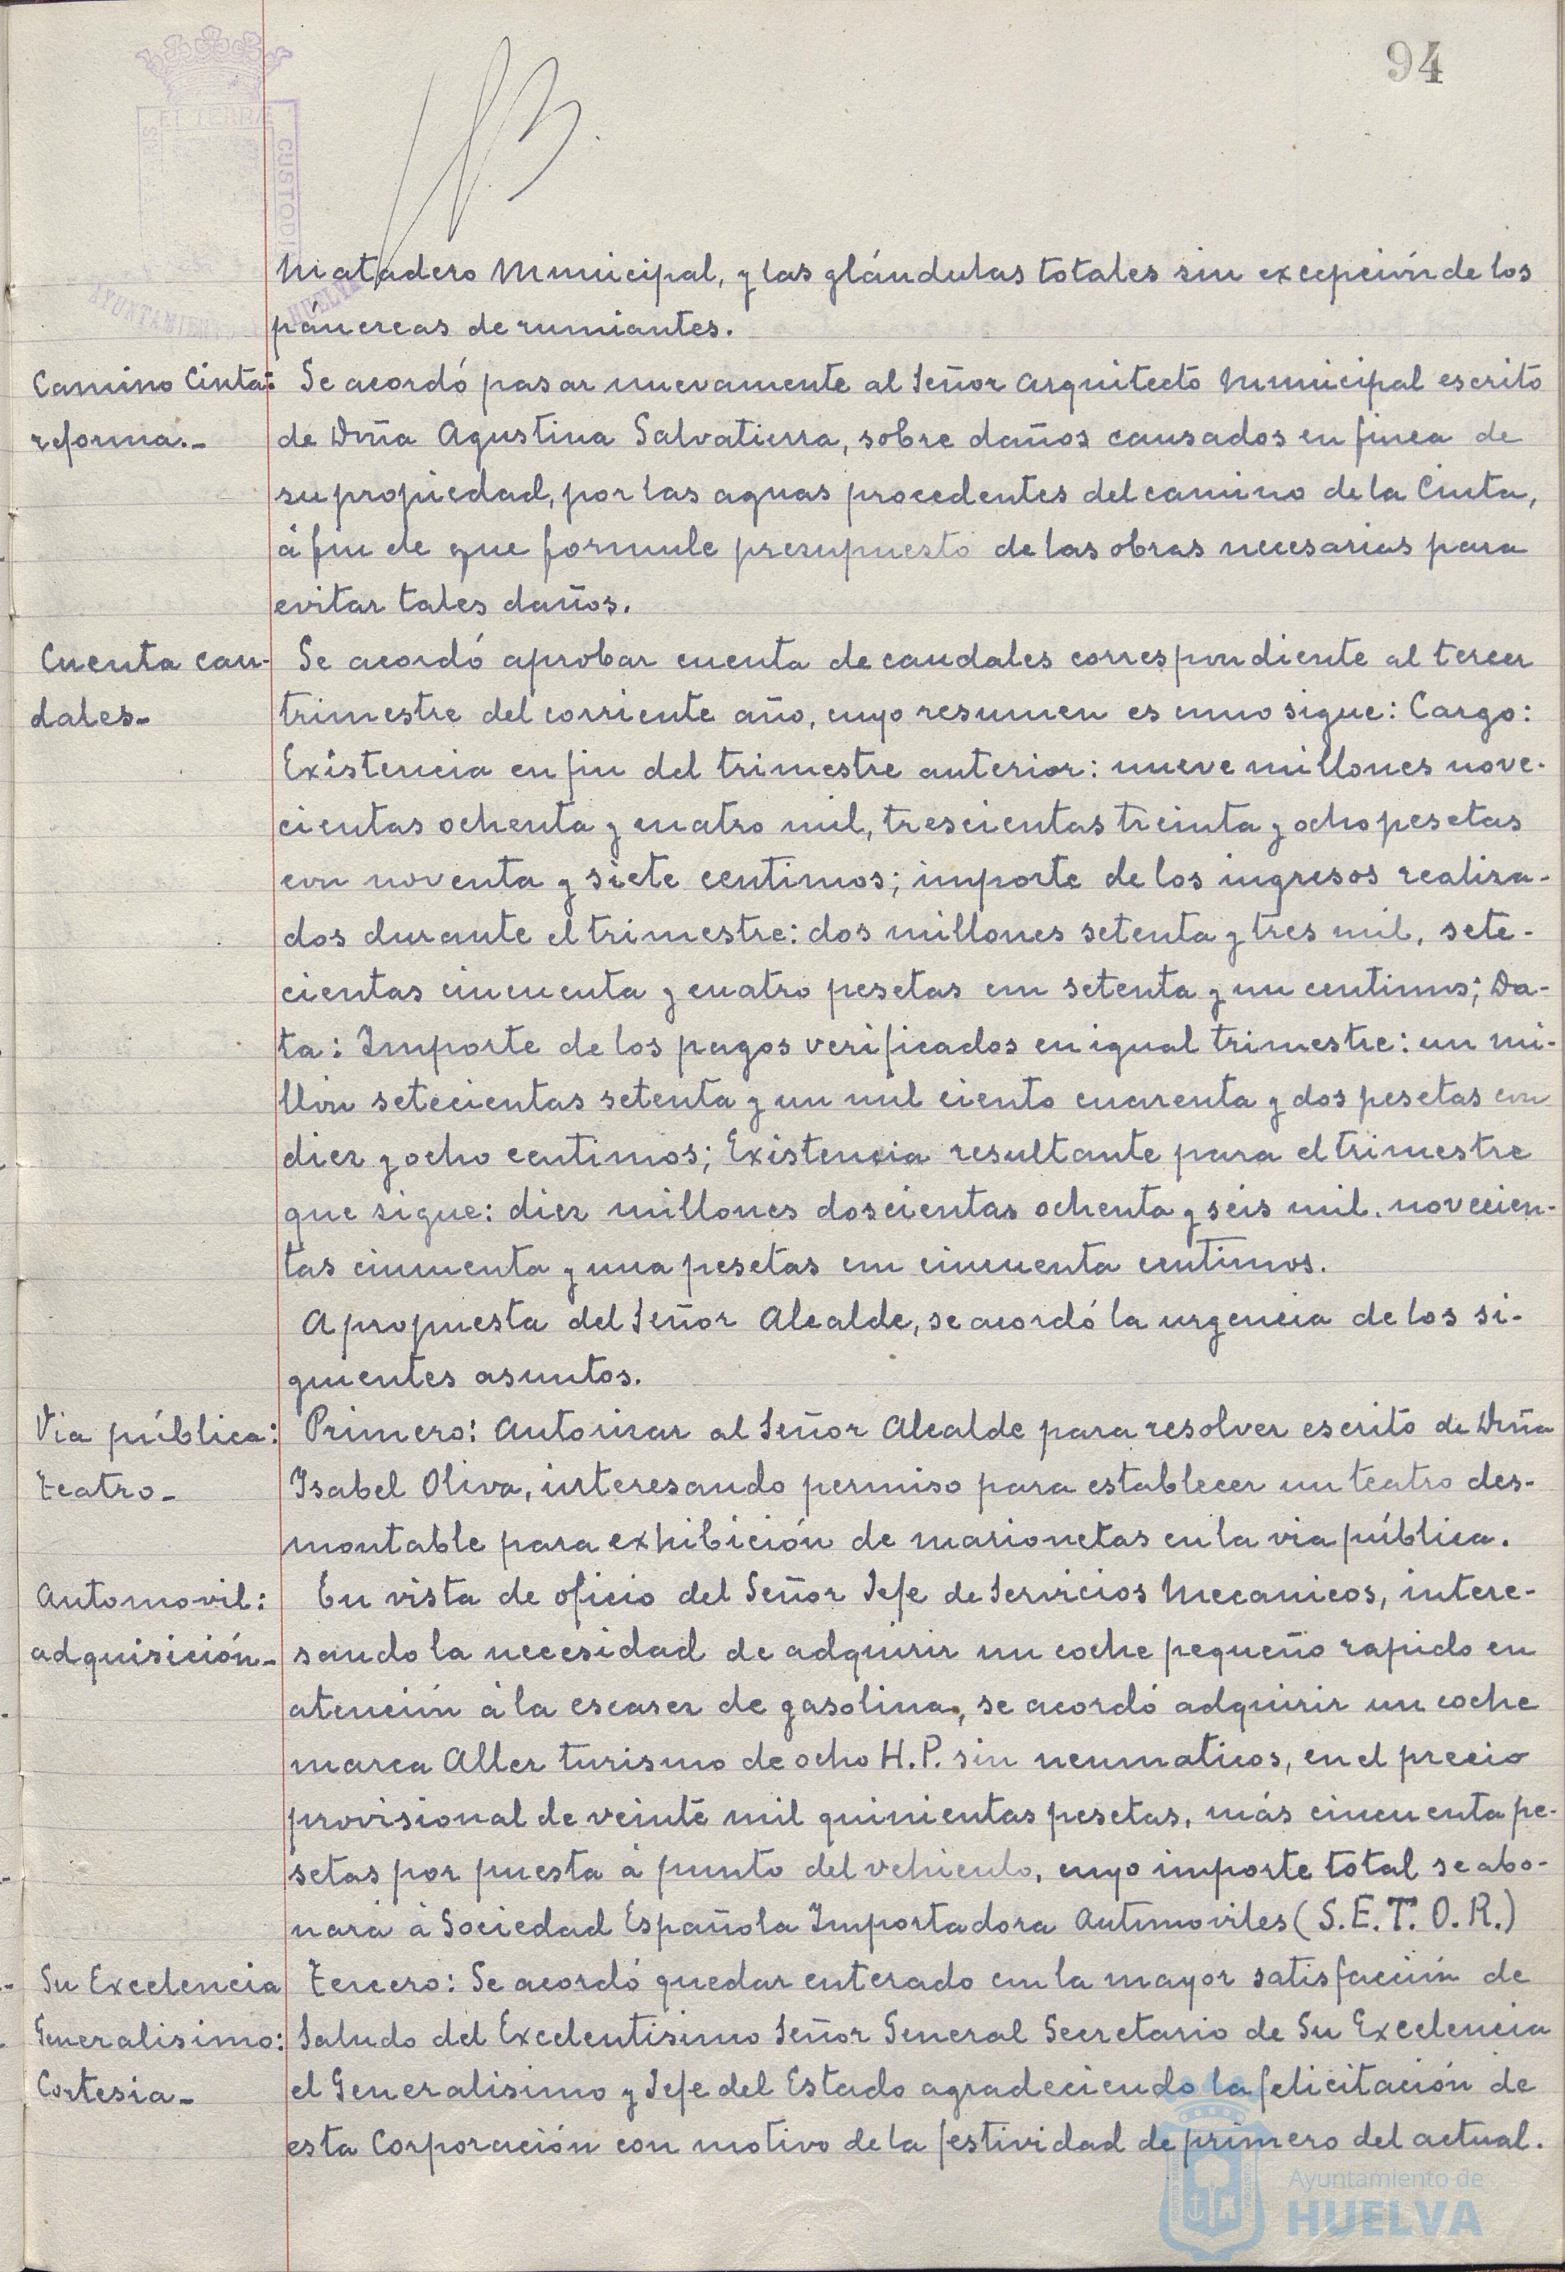 94
ET TERRÆ
CUSTODI
AYUNTAMIEN
HUELVA
Matadero Municipal, y las glándulas totales sin excepción de los
páncreas de rumiantes.
Camino Cinta:
reforma.-
Se acordó pasar nuevamente al Señor Arquitecto Municipal escrito
de Dña Agustina Salvatierra, sobre daños causados en finca de
su propiedad, por las aguas procedentes del camino de la Cinta,
á fin de que formule presupuesto de las obras necesarias para
evitar tales daños.
Cuenta cau-
dales-
Se acordó aprobar cuenta de caudales correspondiente al tercer
trimestre del corriente año, cuyo resumen es como sigue: Cargo:
Existencia en fin del trimestre anterior: nueve millones nove-
cientas ochenta y cuatro mil, trescientas treinta y ocho pesetas
con noventa y siete centimos; importe de los ingresos realiza-
dos durante el trimestre: dos millones setenta y tres mil, sete-
cientas cincuenta y cuatro pesetas con setenta y un centimos; Da-
ta: Importe de los pagos verificados en igual trimestre: un mi-
llón setecientas setenta y un mil ciento cuarenta y dos pesetas con
diez y ocho centimos; Existencia resultante para el trimestre
que sigue: diez millones doscientas ochenta y seis mil, novecien-
tas cincuenta y una pesetas con cincuenta centimos.
A propuesta del Señor Alcalde, se acordó la urgencia de los si-
guientes asuntos.
Via pública:
teatro-
Primero: Autorizar al Señor Alcalde para resolver escrito de Dña
Isabel Oliva, interesando permiso para establecer un teatro des-
montable para exhibición de marionetas en la via pública.
Automovil:
adquisición-
En vista de oficio del Señor Jefe de Servicios Mecanicos, intere-
sando la necesidad de adquirir un coche pequeño rapido en
atención á la escasez de gasolina, se acordó adquirir un coche
marca Aller turismo de ocho H.P. sin neumaticos, en el precio
provisional de veinte mil quinientas pesetas, más cincuenta pe-
setas por puesta á punto del vehiculo, cuyo importe total se abo-
nará á Sociedad Española Importadora Automoviles (S.E.T.O.R.)
Su Excelencia
Generalisimo:
Cortesia-
Tercero: Se acordó quedar enterado con la mayor satisfacción de
Saludo del Excelentisimo Señor General Secretario de Su Excelencia
el Generalisimo y Jefe del Estado agradeciendo la felicitación de
esta Corporación con motivo de la festividad de primero del actual.
Ayuntamiento de
HUELVA